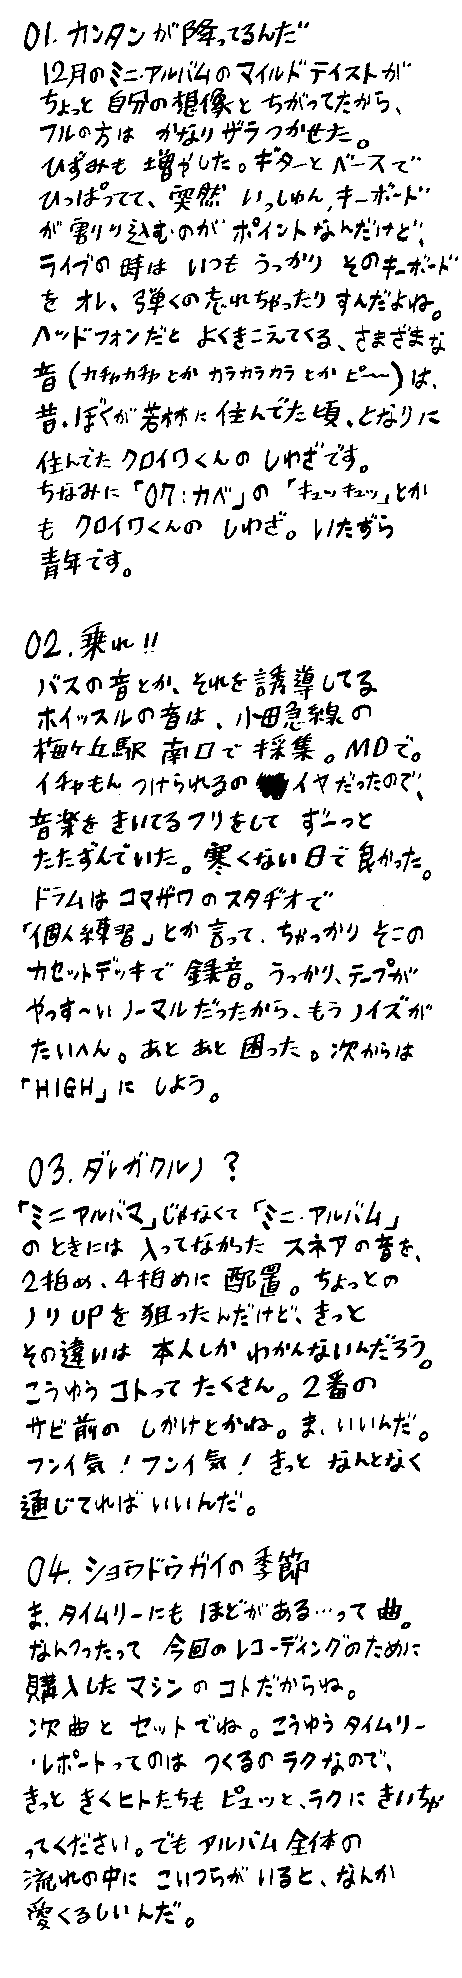 01. カンタンが降ってるんだ
12月のミニ・アルバムのマイルドテイストが
ちょっと自分の想像とちがってたから、
フルの方は かなりザラつかせた。
ひずみも増やした。ギターとベースで
ひっぱってて、突然 いっしゅん、キーボード
が割り込むのが ポイントなんだけど、
ライブの時は いつも うっかり そのキーボード
を オレ、弾くの忘れちゃったりすんだよね。
ヘッドフォンだと よくきこえてくる、さまざまな
音(カチャカチャとか カラカラカラとか ピー〜)は、
昔、ぼくが若林に住んでた頃、となりに
住んでた クロイワくんの しわざです。
ちなみに「07:カベ」の「キュッキュッ」とか
も クロイワくんの しわざ。いたずら
青年です。
02. 乗れ!!
バスの音とか、それを誘導してる
ホイッスルの音は、小田急線の
梅ヶ丘駅 南口で採集。MDで。
イチャもん つけられるの イヤだったので、
音楽をきいてるフリをして ずーっと
たたずんでいた。寒くない日で良かった。
ドラムはコマザワのスタヂオで
「個人練習」とか言って、ちゃっかり そこの
カセットデッキで 録音。うっかり、テープが
やっす〜いノーマルだったから、もうノイズが
たいへん。あとあと困った。次からは
「HIGH」に しよう。
03. ダレガクルノ?
「ミニアルバマ」じゃなくて「ミニ・アルバム」
のときには 入ってなかった スネアの音を、
2拍め、4拍めに 配置。ちょっとの
ノリUPを狙ったんだけど、きっと
その違いは 本人しか わかんないんだろう。
こうゆう コトって たくさん。2番の
サビ前の しかけとかね。ま、いいんだ。
フンイ気!フンイ気!きっと なんとなく
通じてれば いいんだ。
04. ショウドウガイの季節
ま、タイムリーにも ほどがある…って曲。
なんつったって 今回のレコーディングのために
購入した マシンの コトだからね。
次曲と セットでね。こうゆうタイムリー
・レポートってのは つくるの ラクなので、
きっと きくヒトたちも ピュッと、ラクに きいちゃ
ってください。でも アルバム全体の
流れの中に こいつらが いると、なんか
愛くるしいんだ。